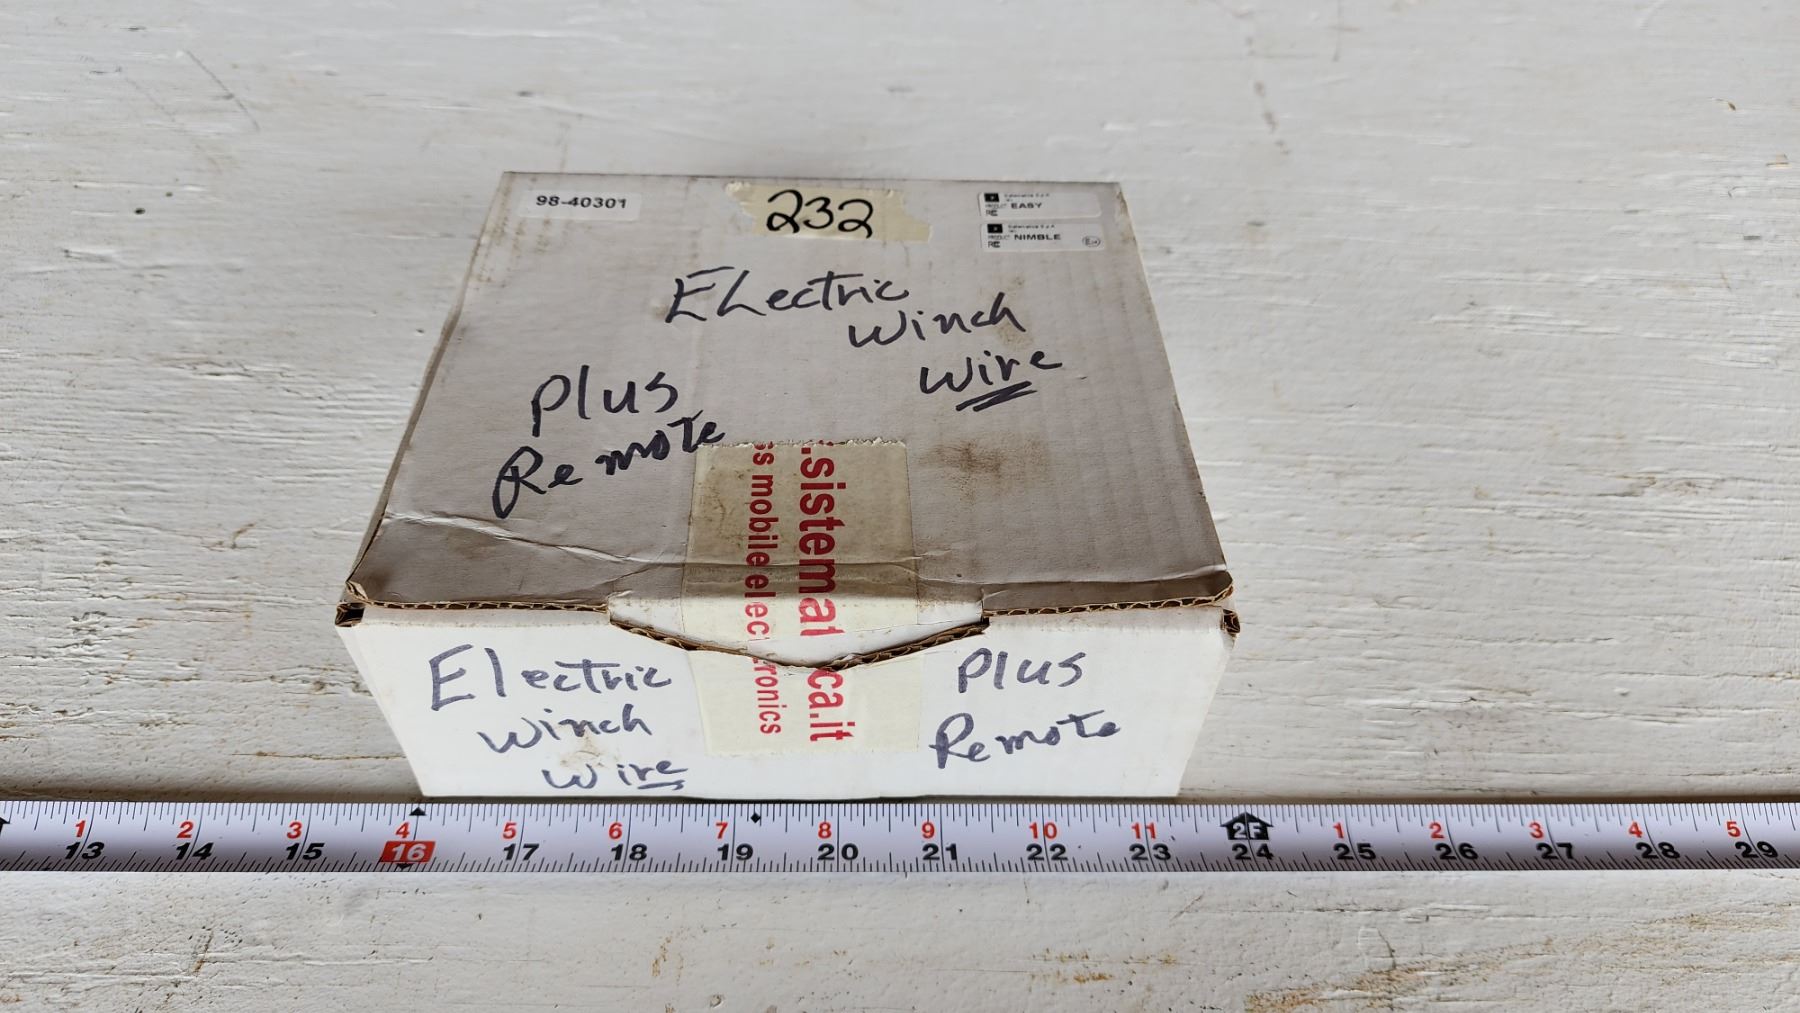 98-40301
232
EASY
NIMBLE
ELectric
Winch
Wire
Plus
Remote
.sistematica.it
ss mobile electronics
Electric
Winch
Wire
Plus
Remote
1 2 3 4 5 6 7 8 9 10 11 2F 1 2 3 4 5
13 14 15 16 17 18 19 20 21 22 23 24 25 26 27 28 29